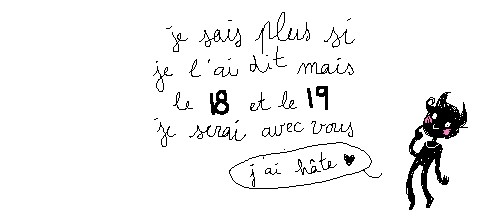 je sais plus si
je l'ai dit mais
le 18 et le 19
je serai avec vous
j'ai hâte ♥